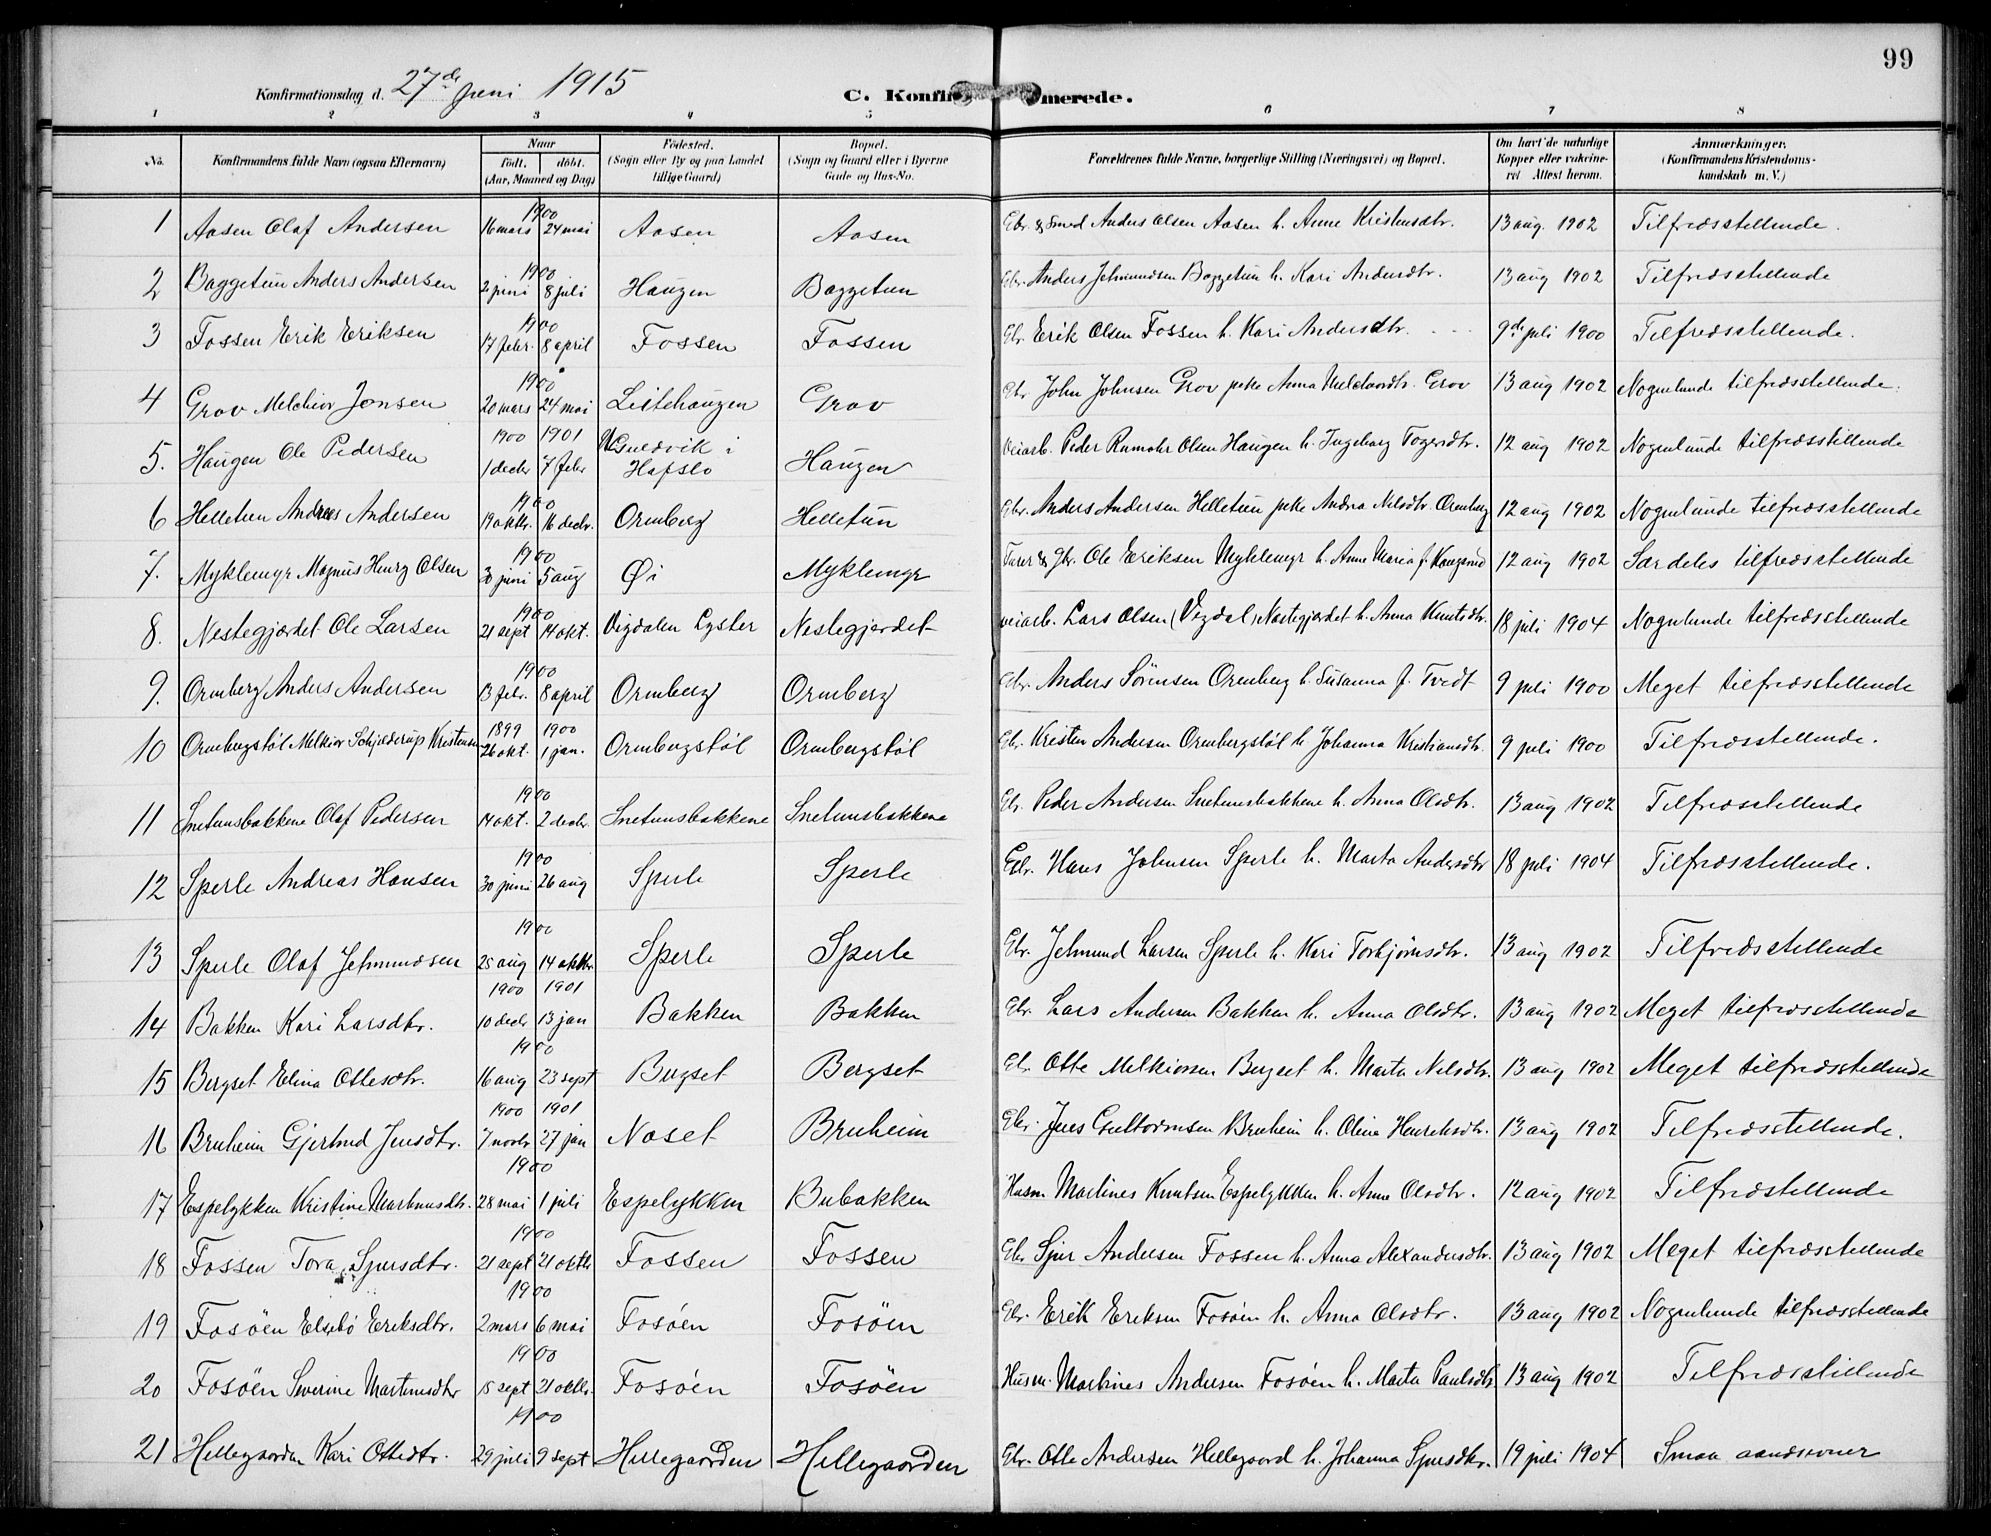 99
Konfirmationsdag d. 27de juni 1915 C. Konfirmerede.
1 2 3 4 5 6 7 8
No. Konfirmandens fulde Navn (ogsaa Efternavn) Naar födt. döbt. (Aar, Maaned og Dag) Födested. (Sogn eller By og paa Landet tillige Gaard) Bopæl. (Sogn og Gaard eller i Byerne Gade og Hus-No. Forældrenes fulde Navne, borgerlige Stilling (Næringsvei) og Bopæl. Om havt de naturlige Kopper eller vakcineret Attest herom. Anmærkninger. (Konfirmandens Kristendomskundskab m. V.)
1 Aasen Olaf Andersen 1900 16 mars 24 mai Aasen Aasen Gbr & smed Anders Olsen Aasen h. Anne Kristensdtr. 13 aug. 1902 Tilfredsstellende.
2 Baggetun Anders Andersen 1900 2 juni 8 juli Haugen Baggetun Gbr. Anders Jehmundsen Baggetun h. Kari Andersdtr. 13 aug 1902 Tilfredsstellende
3 Fossen Erik Eriksen 1900 17 febr. 8 april Fossen Fossen Gbr. Erik Olsen Fossen h. Kari Andersdtr. 9de juli 1900 Tilfredsstellende.
4 Grov Melchior Jonsen 1900 20 mars 24 mai Leitehaugen Grov Gbr John Johnsen Grov pike Anna Melchiordtr. Grov 13 aug 1902 Nogenlunde tilfredsstellende.
5. Haugen Ole Pedersen 1900 1901 1 decbr 7 febr i Hafslo Haugen Veiarb. Peder Rumohr Olsen Haugen h. Ingeborg Togersdtr. 12 aug 1902 Nogenlunde tilfredsstellende
6 Helletun Andreas Andersen 1900 19 oktbr. 16 decbr. Ormberg Helletun Gbr. Anders Andersen Helletun pike Andrea Nilsdtr. Ormberg 12 aug 1902 Nogenlunde tilfredsstellende
7. Myklemyr Magnus Henry Olsen 1900 30 juni 5 aug Øi Myklemyr & Gbr. Ole Eriksen Myklemyr h. Anne Maria f. Kongsrud 12 aug 1902 Særdeles tilfredsstellende
8. Nestegjærdet Ole Larsen 1900 21 sept 14 okt. Vigdalen Lyster Nestegjerdet veiarb. Lars Olsen (Vigdal) Nestegjærdet h. Anna Knutsdtr. 18 juli 1904 Nogenlunde tilfredsstellende
9. Ormberg Anders Andersen 1900 13 febr. 8 april Ormberg Ormberg Gbr. Anders Sörensen Ormberg h. Susanna f. Tvedt 9 juli 1900 Meget tilfredsstellende
10 Ormbergstöl Melkior Schjelderup Kristensen 1899 1900 26 okt. 1 jan. Ormbergstöl Ormbergstöl Gbr. Kristen Andersen Ormbergstöl h. Johanna Kristiansdtr. 9 juli 1900 Tilfredsstellende.
11 Snetunsbakkene Olaf Pedersen 1900 14 okt. 2 decbr. Snetunsbakkene Snetunsbakkene Gbr. Peder Andersen Snetunsbakkene h. Anna Olsdtr. 13 aug 1902 Tilfredsstellende
12 Sperle Andreas Hansen 1900 30 juni 26 aug Sperle Sperle Gbr. Hans Johnsen Sperle h. Marta Andersdtr 18 juli 1904 Tilfredsstellende.
13 Sperle Olaf Jehmundsen 1900 25 aug 14 oktbr. Sperle Sperle Gbr. Jehmund Larsen Sperle h. Kari Torbjörnsdtr. 13 aug 1902 Tilfredsstellende
14 Bakken Kari Larsdtr. 1900 1901 10 decbr 13 jan Bakken Bakken Gbr. Lars Andersen Bakken h. Anna Olsdtr. 13 aug 1902 Meget tilfredsstellende
15 Bergset Elina Ottesdtr. 1900 16 aug 23 sept Bergset Bergset Gbr. Otte Melkiorsen Bergset h. Marta Nilsdtr. 13 aug 1902 Meget tilfredsstellende
16 Bruheim Gjertrud Jensdtr. 1900 1901 7 novbr 27 jan Noset Bruheim Gbr. Jens Guttormsen Bruheim h. Oline Henriksdtr. 13 aug 1902 Tilfredsstellende.
17 Espelykken Kristine Martinusdtr. 1900 28 mai 1 juli Espelykken Bubakken Husm. Martines Knutsen Espelykken h. Anne Olsdtr. 12 aug 1902 Tilfredstellende
18 Fossen Tora Sjursdtr. 1900 21 sept 21 oktbr Fossen Fossen Gbr Sjur Andersen Fossen h. Anna Alexandersdtr. 13 aug 1902 Meget tilfredsstellende
19 Fosöen Elsebö Eriksdtr. 1900 2 mars 6 mai Fosöen Fosöen Gbr. Erik Eriksen Fosöen h. Anna Olsdtr. 13 aug 1902 Nogenlunde tilfredsstellende
20 Fosöen Severine Martinusdtr 1900 15 sept 21 oktbr. Fosöen Fosöen Husm. Martines Andersen Fosöen h. Marta Paulsdtr 13 aug 1902 Tilfredsstillende
21 Hellegaarden Kari Ottedtr. 1900 29 juli 9 sept Hellegaarden Hellegaarden Gbr. Otte Andersen Hellegaard h. Johanna Sjursdtr. 19 juli 1904 Smaa aandsevner